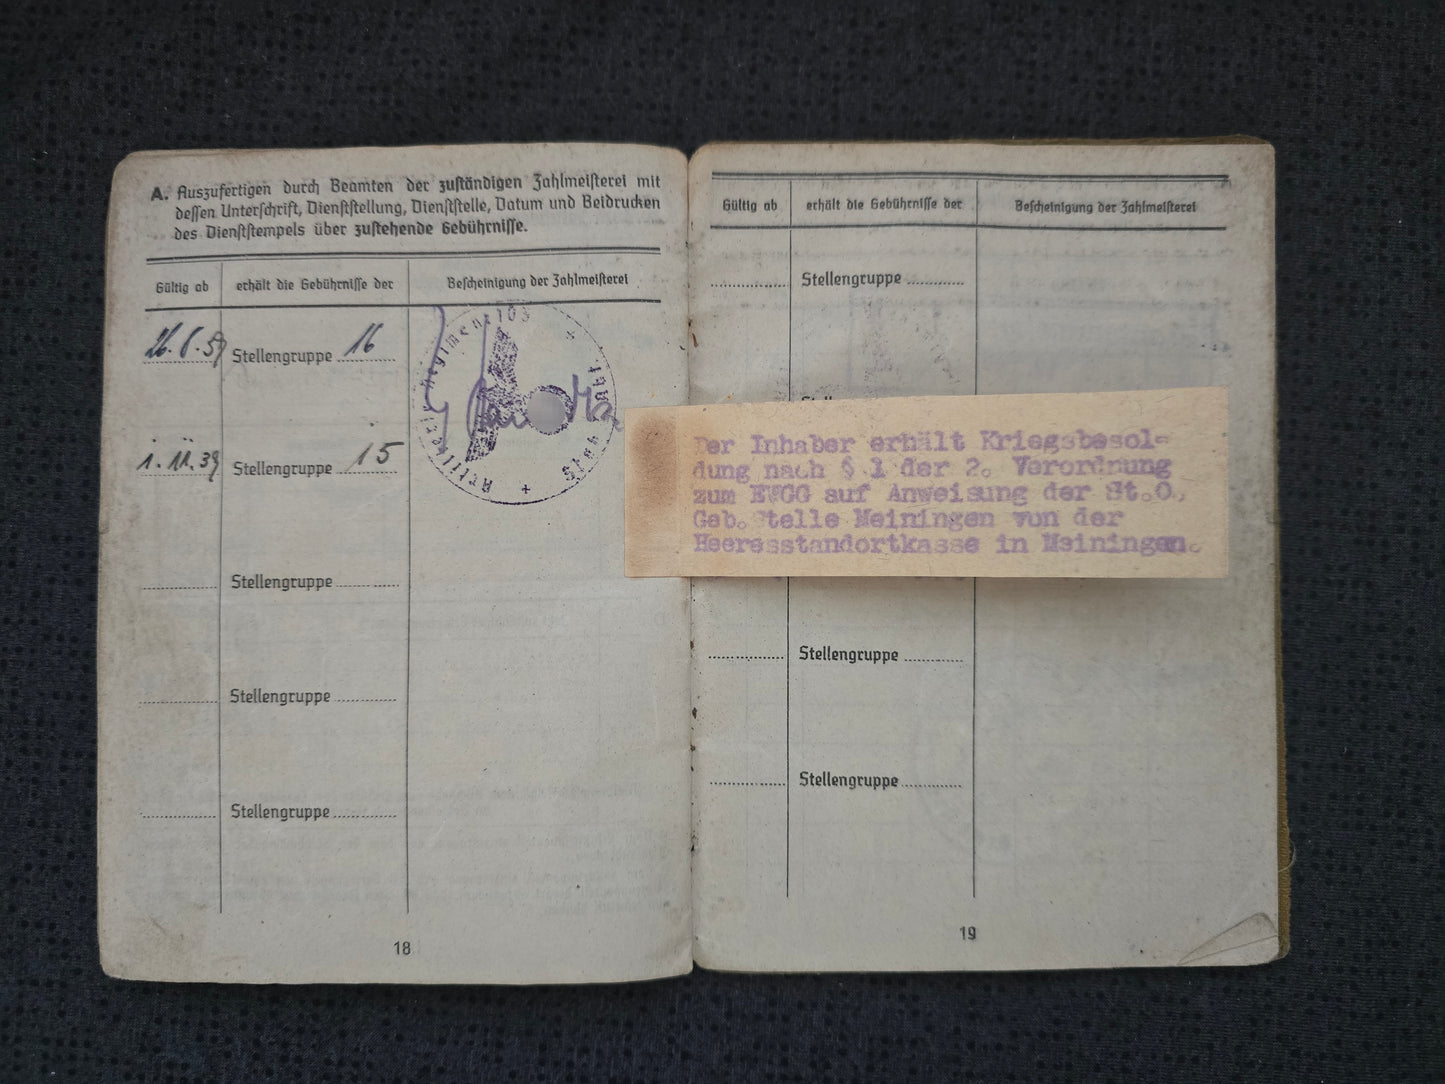 A. Auszufertigen durch Beamten der zuständigen Zahlmeisterei mit
dessen Unterschrift, Dienststellung, Dienststelle, Datum und Beidrucken
des Dienststempels über zustehende Gebührnisse.
Gültig ab erhält die Gebührnisse der Bescheinigung der Zahlmeisterei
26.8.39 Stellengruppe 16
1.11.39 Stellengruppe 15
Stellengruppe
Stellengruppe
Stellengruppe
Artillerie Regiment 103
+ Stab Abt. +
18
Gültig ab erhält die Gebührnisse der Bescheinigung der Zahlmeisterei
Stellengruppe
Der Inhaber erhält Kriegsbesol=
dung nach § 1 der 2. Verordnung
zum EWGG auf Anweisung der St.O.
Geb.Stelle Meiningen von der
Heeresstandortkasse in Meiningen.
Stellengruppe
Stellengruppe
19